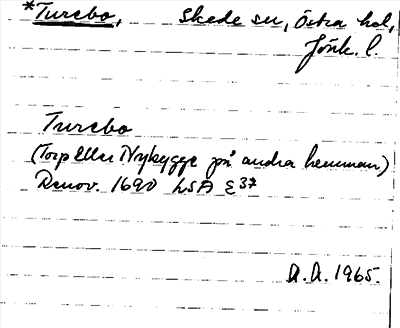 *Turebo, Skede sn, Östra hd,
Jönk. l.
Turebo
(Torp Eller Nybygge på andra hemman)
Renov. 1690 LSA E37
A.A. 1965.